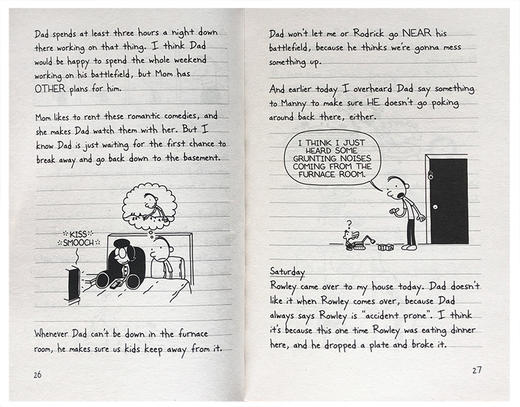 Dad spends at least three hours a night down
there working on that thing. I think Dad
would be happy to spend the whole weekend
working on his battlefield, but Mom has
OTHER plans for him.
Mom likes to rent these romantic comedies, and
she makes Dad watch them with her. But I
know Dad is just waiting for the first chance to
break away and go back down to the basement.
*KISS*
*SMOOCH*
Whenever Dad can't be down in the furnace
room, he makes sure us kids keep away from it.
26
Dad won't let me or Rodrick go NEAR his
battlefield, because he thinks we're gonna mess
something up.
And earlier today I overheard Dad say something
to Manny to make sure HE doesn't go poking
around back there, either.
I THINK I JUST
HEARD SOME
GRUNTING NOISES
COMING FROM THE
FURNACE ROOM.
?
Saturday
Rowley came over to my house today. Dad doesn't
like it when Rowley comes over, because Dad
always says Rowley is "accident prone". I think
it's because this one time Rowley was eating dinner
here, and he dropped a plate and broke it.
27